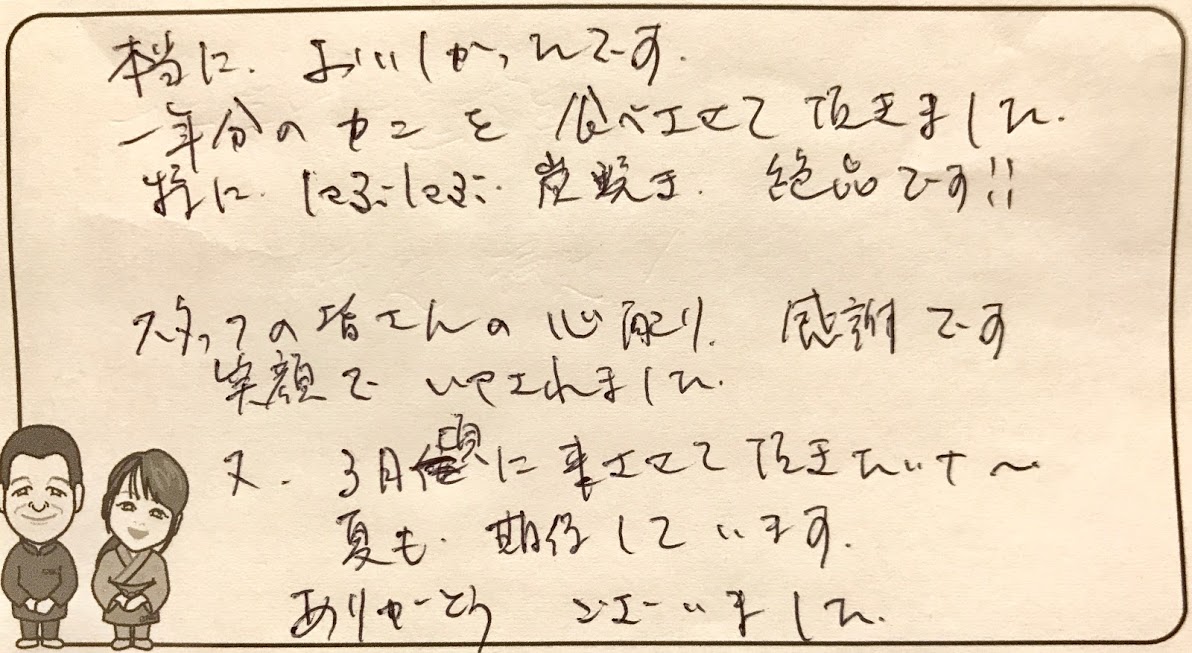 本当に、おいしかったです。
一年分のカニを食べさせて頂きました。
特に、しゃぶしゃぶ、炭焼き、絶品です!!
スタッフの皆さんの心配り、感謝です
笑顔でいやされました。
又、3月頃に来させて頂きたいナ〜
夏も、期待しています。
ありがとうございました。